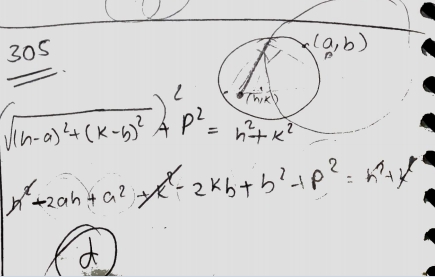 305
(a, b)
P
(h,k)
(√(h-a)²+(k-b)²)² + P² = h²+k²
h²-2ah+a²+k²-2kb+b²+P² = h²+k²
d